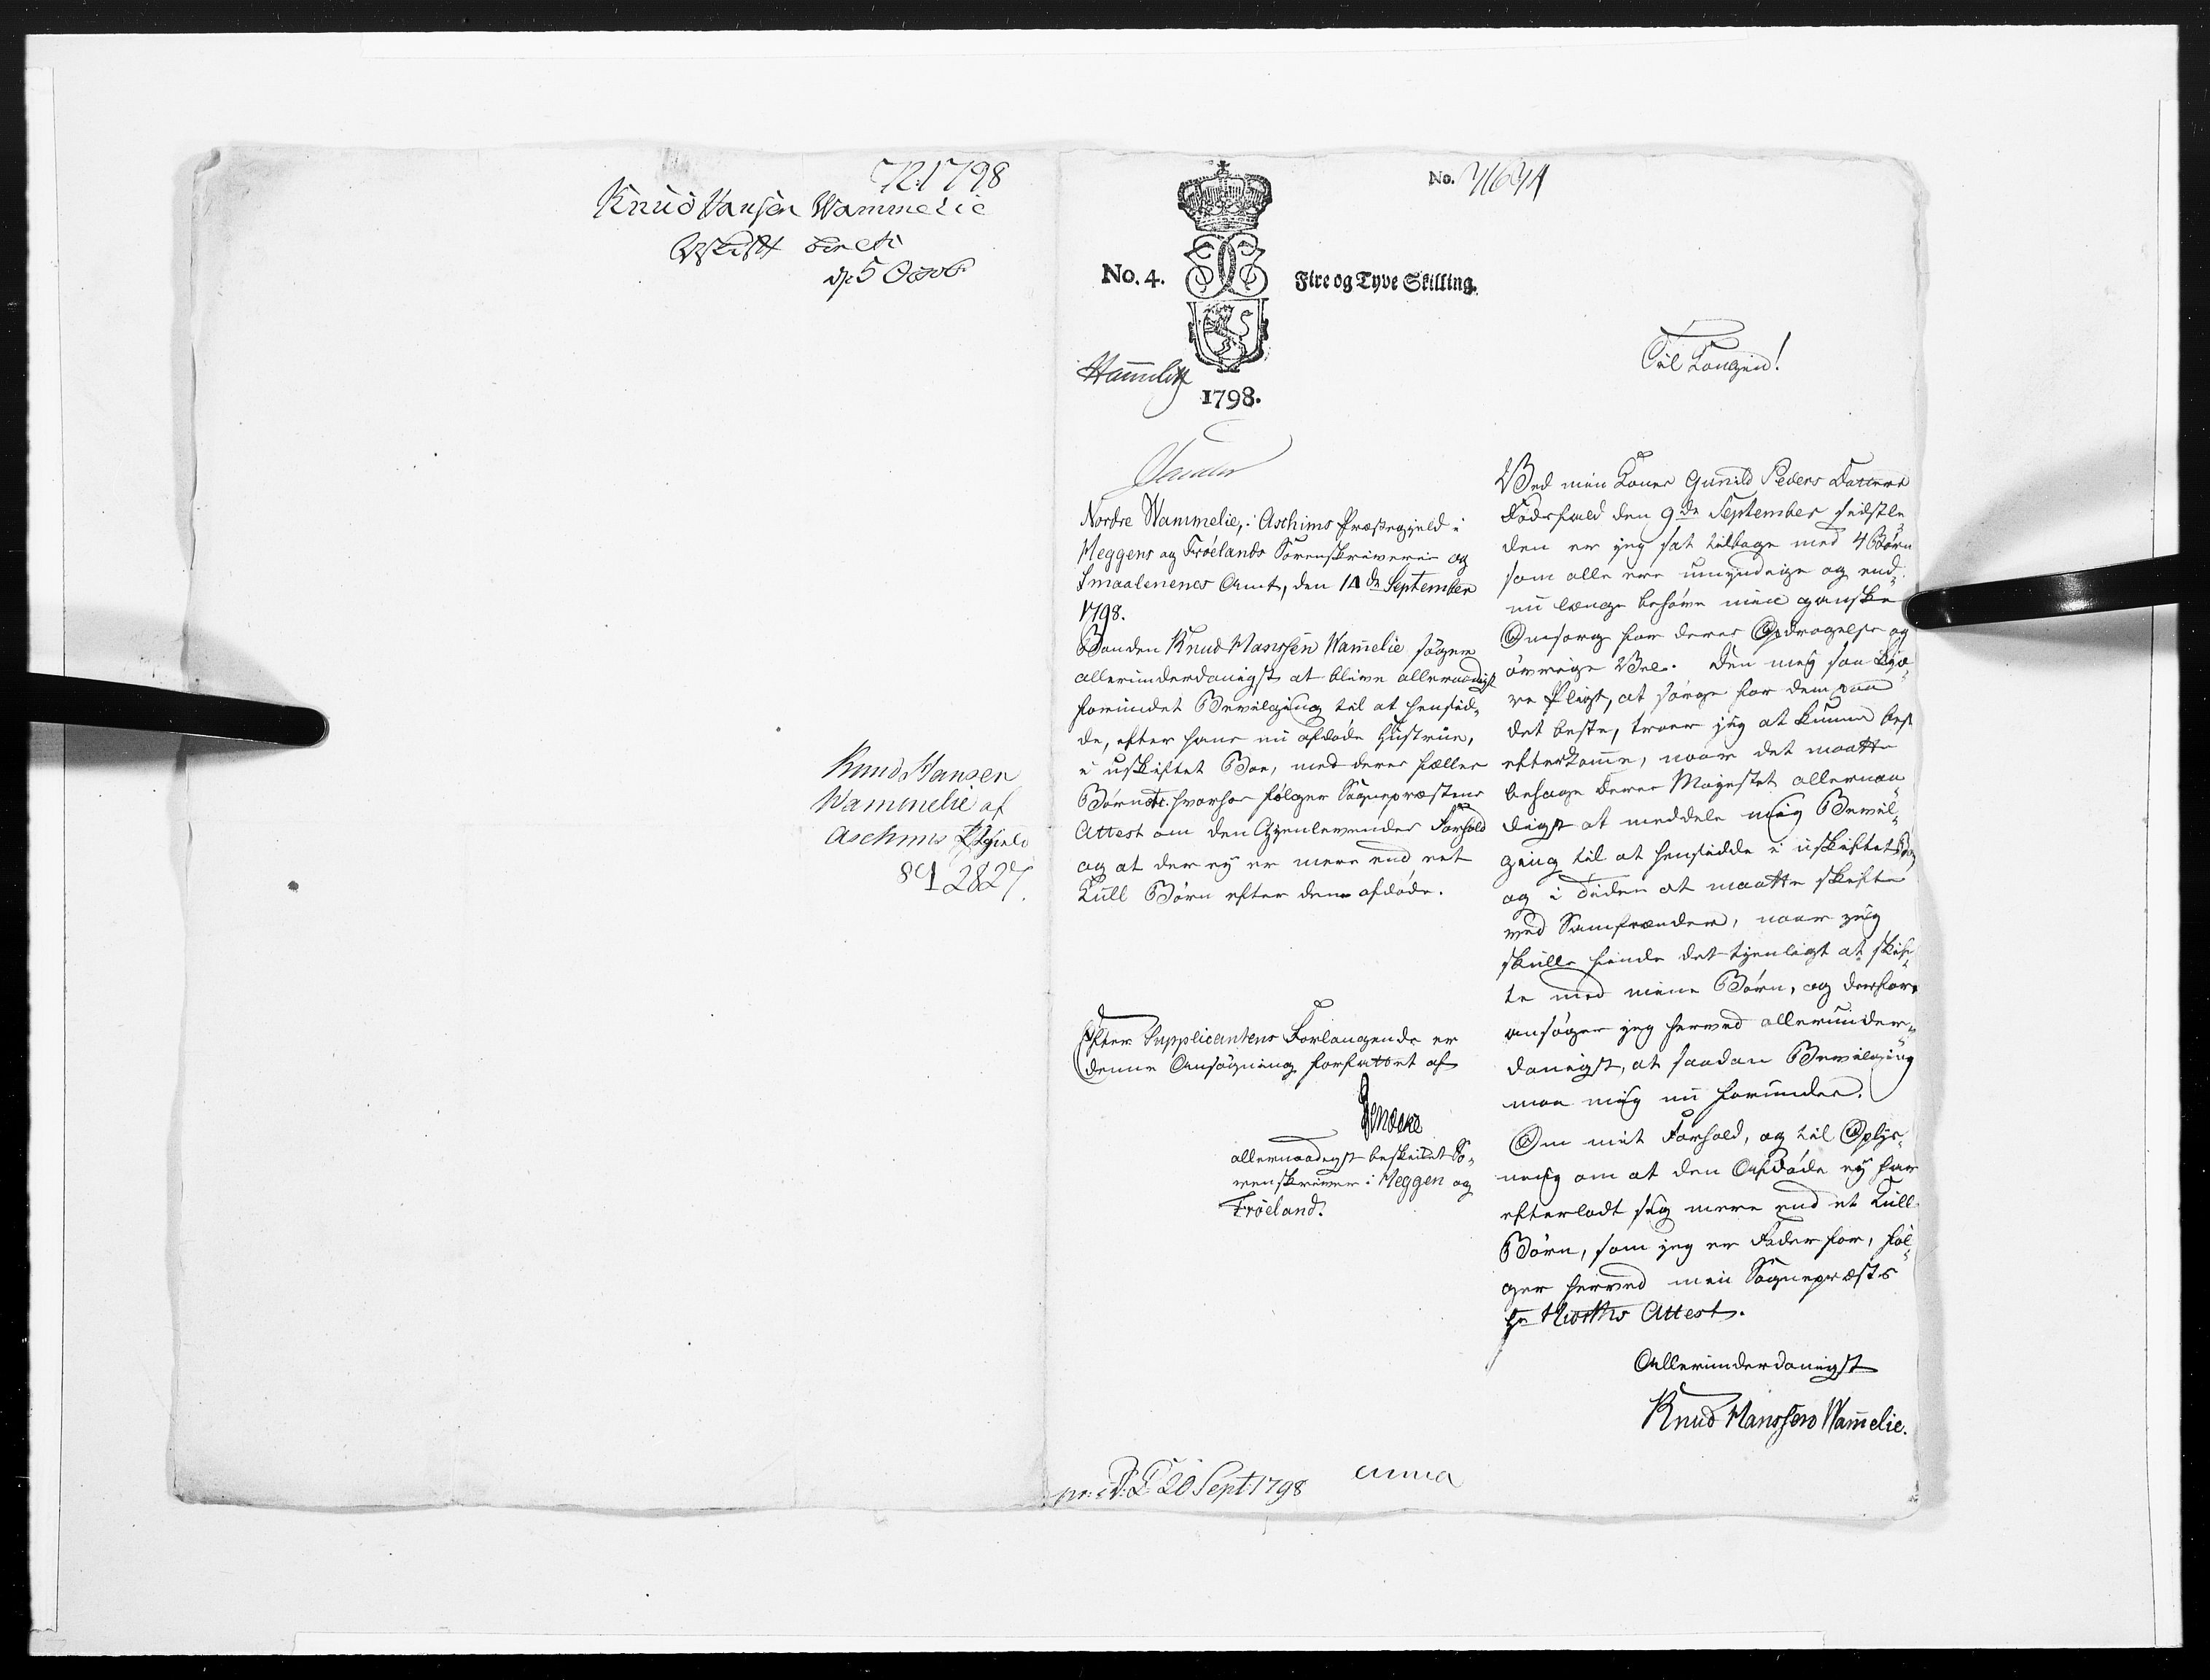 1798
Knud Hansen Wammelie
Uskift Boe
d. 5 Octob
Knud Hansen
Wammelie af
Aschims Pgield
2827
No.
No. 4.
Fire og Tyve Skilling.
1798.
Til Kongen!
Nordre Wammelie, i Aschims Præstegield i
Heggens og Fröelands Sorenskriverie og
Smaalenenes Amt, den 14de September
1798.
Bonden Knud Hanssen Wam̄elie søger
allerunderdanigst at blive allernaadigst
forundet Bevilgning til at hensid„
de, efter hans nu afdøde Hustrue,
i uskiftet Boe, med deres fælles
Børn. hvorhos følger Sognepræstens
Attest om den Gienlevendes Forhold
og at der ey er mere end eet
Kuld Børn efter den afdøde.
Efter Supplicantens Forlangende er
denne Ansøgning forfattet af
allernaadigst beskikket So„
renskriver i Heggen og
Fröeland.
Ved min Kones Gunild Peders Datters
Dødsfald den 9de September sidstle
den er jeg sat tilbage med 4 Børn
som alle ere umyndige og end„
nu længe behøve min ganske
Omsorg for deres Opdragelse og
øvrige Vel. Den mig saa kiæ„
re Pligt, at sørge for dem paa
det beste, troer jeg at kunne best
efterkom̄e, naar det maatte
behage Deres Mayestet allernaa„
digst at meddele mig Bevil„
gning til at hensidde i uskiftet Boe,
og i Tiden at maatte skifte
ved Samfrænder, naar jeg
skulle finde det tienligt at skif„
te med mine Børn, og derfore
ansøger jeg herved allerunder„
danigst, at saadan Bevilgning
maa mig nu forundes.
Om mit Forhold, og til Oplys„
ning om at den Afdøde ey har
efterladt sig mere end et Kuld
Børn, som jeg er Fader for, føl„
ger herved min Sognepræsts
Hr Attest.
Allerunderdanigst
Knud Hanssen Wam̄elie.
20 Sept: 1798